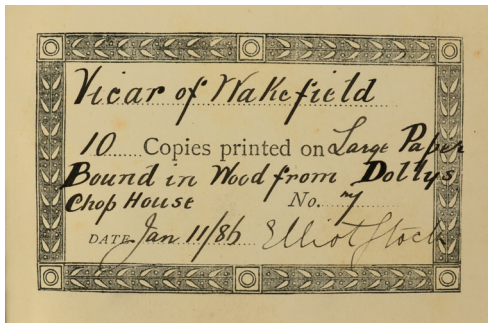 Vicar of Wakefield
10 Copies printed on Large Paper
Bound in Wood from Dollys
Chop House No. 7
DATE Jan 11/86 Elliot Stock